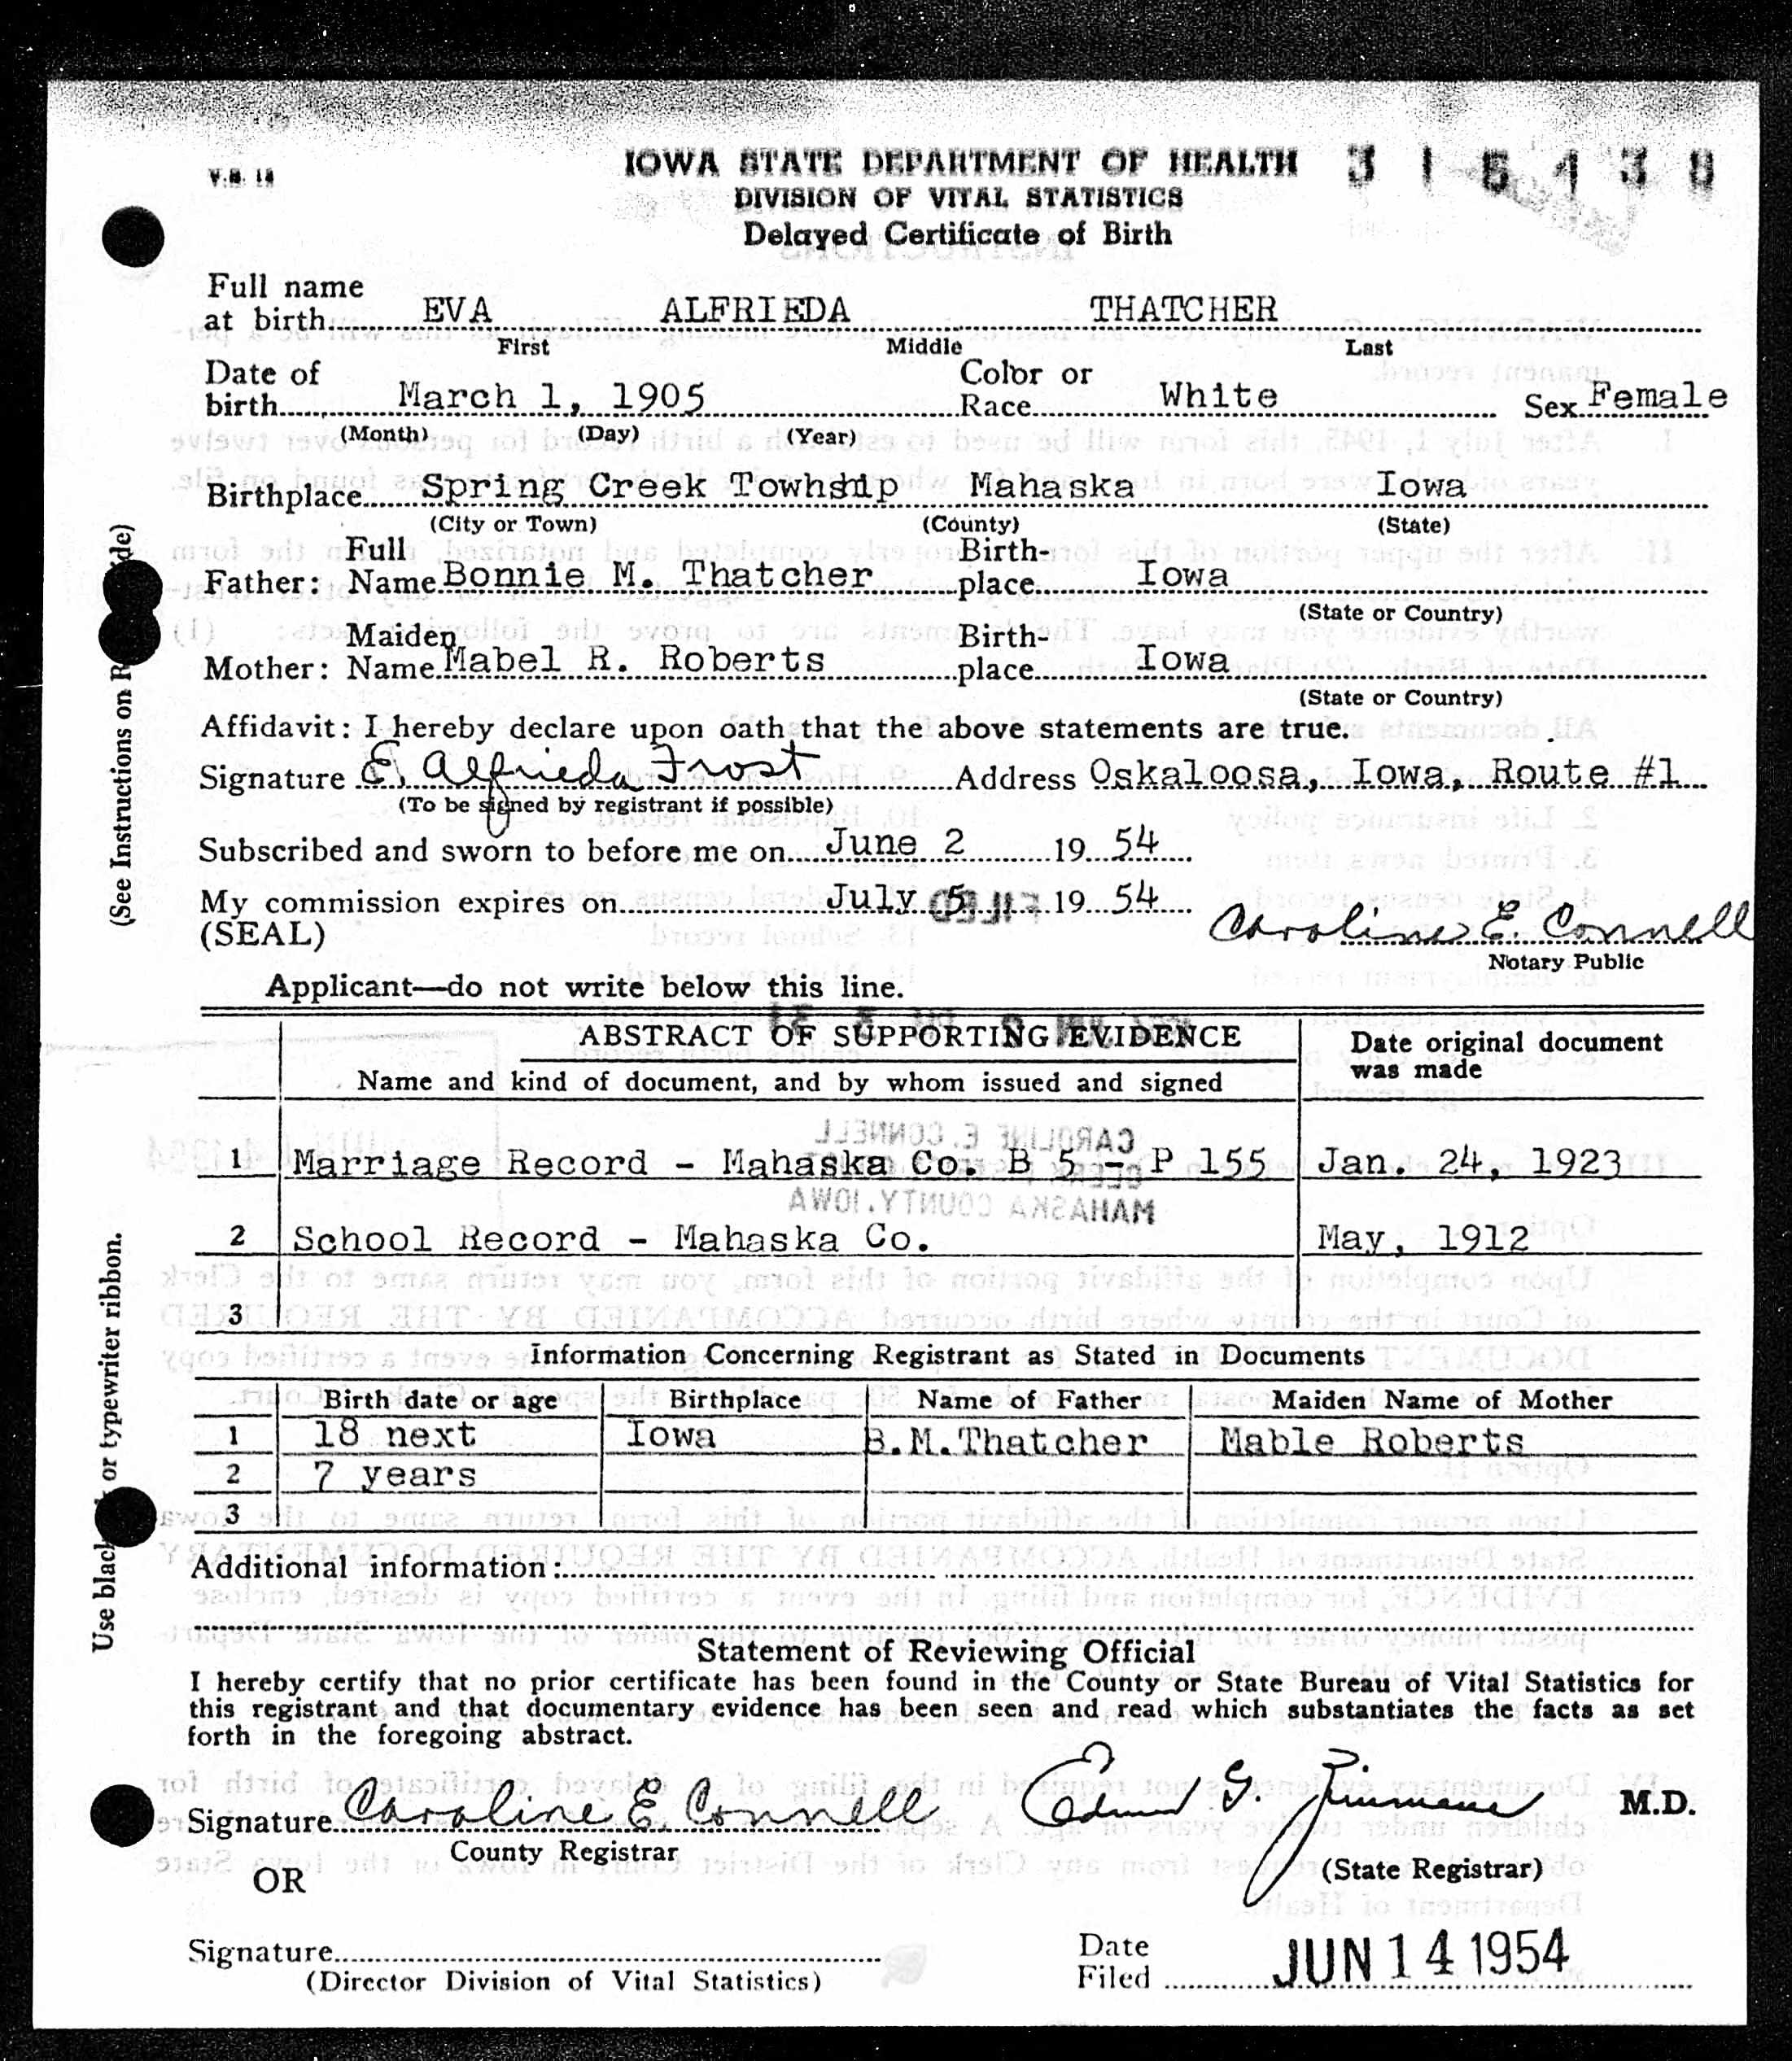 V.S. 14
IOWA STATE DEPARTMENT OF HEALTH
DIVISION OF VITAL STATISTICS
Delayed Certificate of Birth
Full name
at birth EVA ALFRIEDA THATCHER
First Middle Last
Date of Color or
birth March 1, 1905 Race White Sex Female
(Month) (Day) (Year)
Birthplace Spring Creek Township Mahaska Iowa
(City or Town) (County) (State)
Full Birth-
Father: Name Bonnie M. Thatcher place Iowa
(State or Country)
Maiden Birth-
Mother: Name Mabel R. Roberts place Iowa
(State or Country)
Affidavit: I hereby declare upon oath that the above statements are true.
Signature E. Alfrieda Frost Address Oskaloosa, Iowa, Route #1
(To be signed by registrant if possible)
Subscribed and sworn to before me on June 2 19 54
My commission expires on July 5 19 54
(SEAL) Caroline E. Connell
Notary Public
Applicant—do not write below this line.
ABSTRACT OF SUPPORTING EVIDENCE
Name and kind of document, and by whom issued and signed
Date original document
was made
CAROLINE E. CONNELL
1 Marriage Record - Mahaska Co. B 5 - P 155 Jan. 24, 1923
MAHASKA COUNTY, IOWA
2 School Record - Mahaska Co. May, 1912
3
Information Concerning Registrant as Stated in Documents
Birth date or age Birthplace Name of Father Maiden Name of Mother
1 18 next Iowa B.M.Thatcher Mable Roberts
2 7 years
3
Additional information:
Statement of Reviewing Official
I hereby certify that no prior certificate has been found in the County or State Bureau of Vital Statistics for
this registrant and that documentary evidence has been seen and read which substantiates the facts as set
forth in the foregoing abstract.
Signature Caroline E Connell M.D.
County Registrar (State Registrar)
OR
Signature Date
(Director Division of Vital Statistics) Filed JUN 14 1954
(See Instructions on
Use or typewriter ribbon.